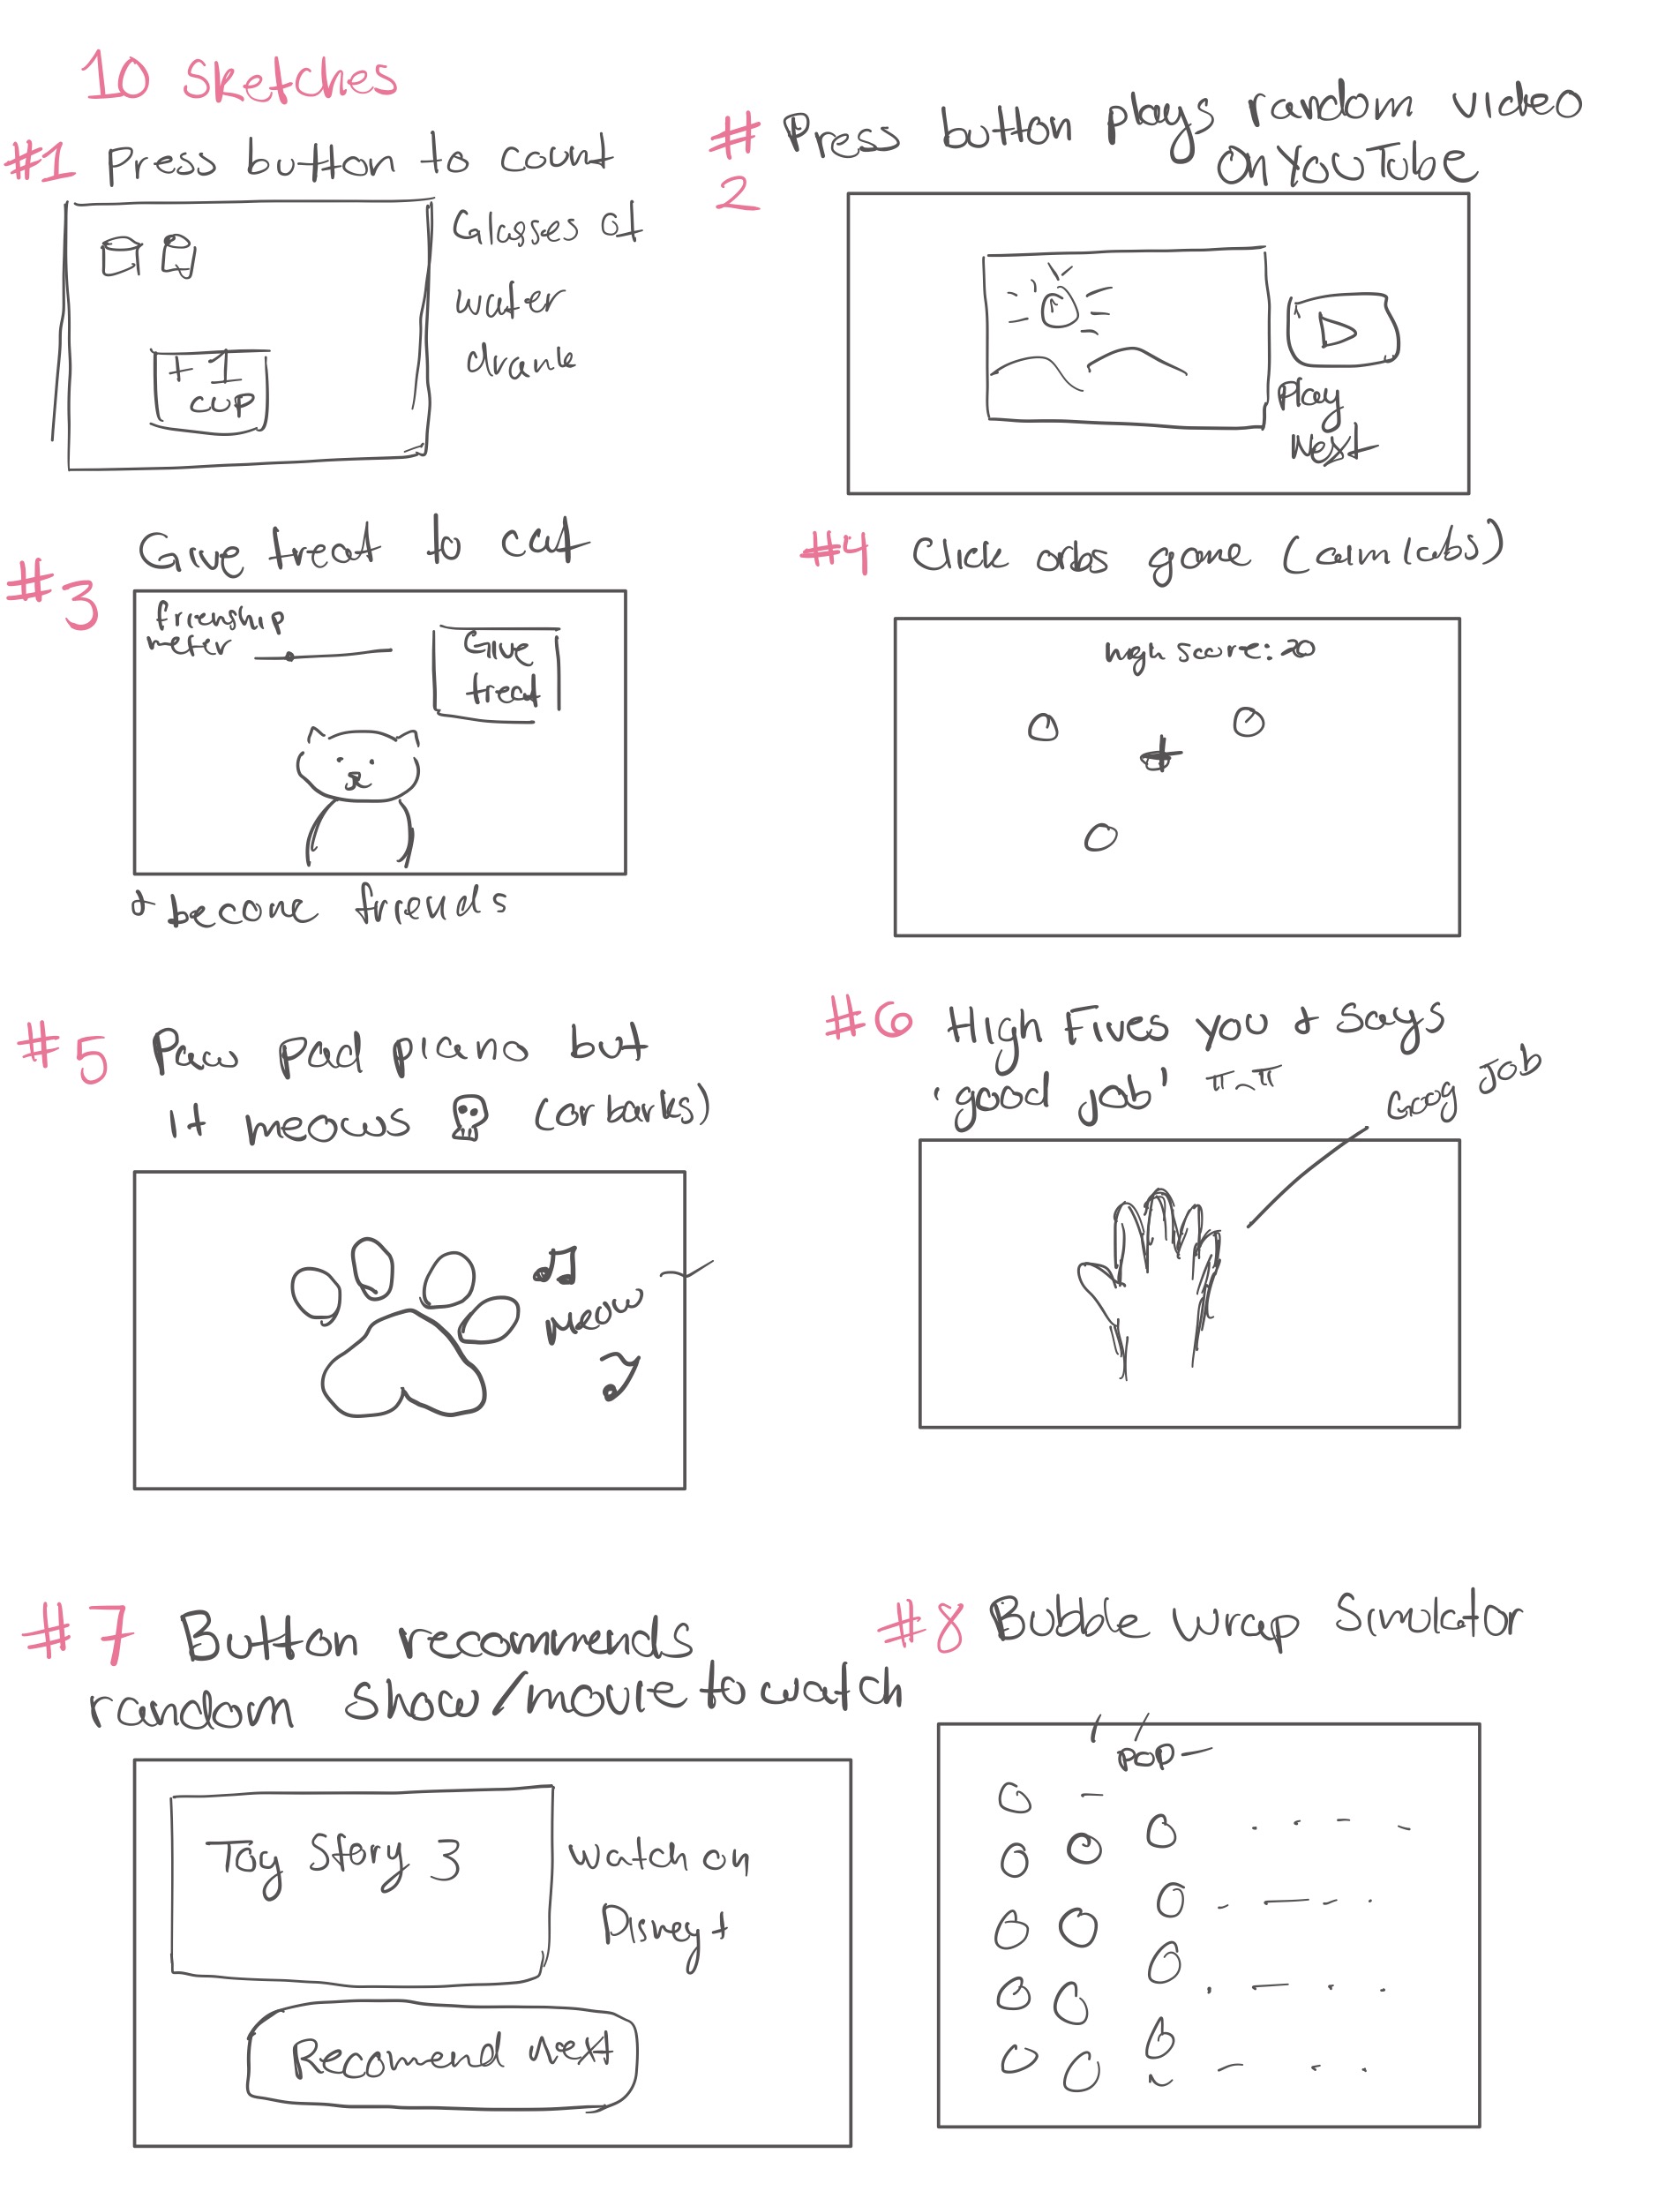 10 Sketches
#1 Press button to count
Glasses of
water
drank
+1
cup
#2 Press button plays random video
on YouTube
Play
Next
#3 Give treat to cat
frienship
meter
Give
treat
+ become friends
#4 Click orbs game (aimlabs)
high score: 20
#5 Paw pad piano but
it meows 💀 (or barks)
meow
#6 High Fives you + says
'good job' π_π
Goog Job
#7 Button recommends
random show/movie to watch
Toy Story 3
watch on
Disney+
Recomend next
#8 Bubble wrap Simulator
POP